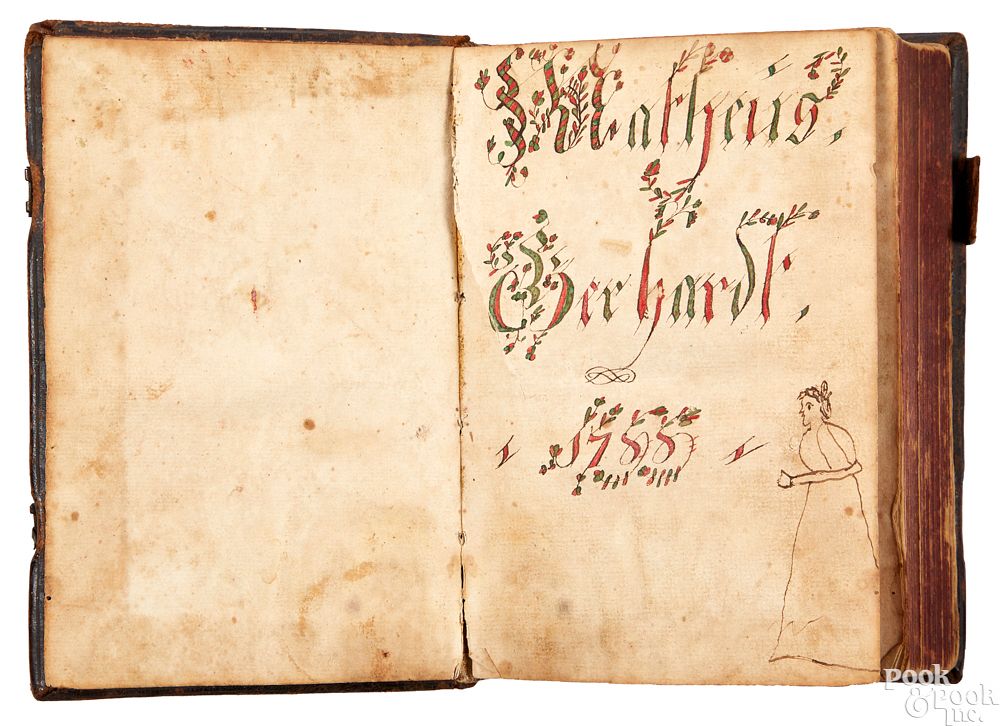 Matheus.
Gerhardt.
1788
Pook
& Pook
Inc.